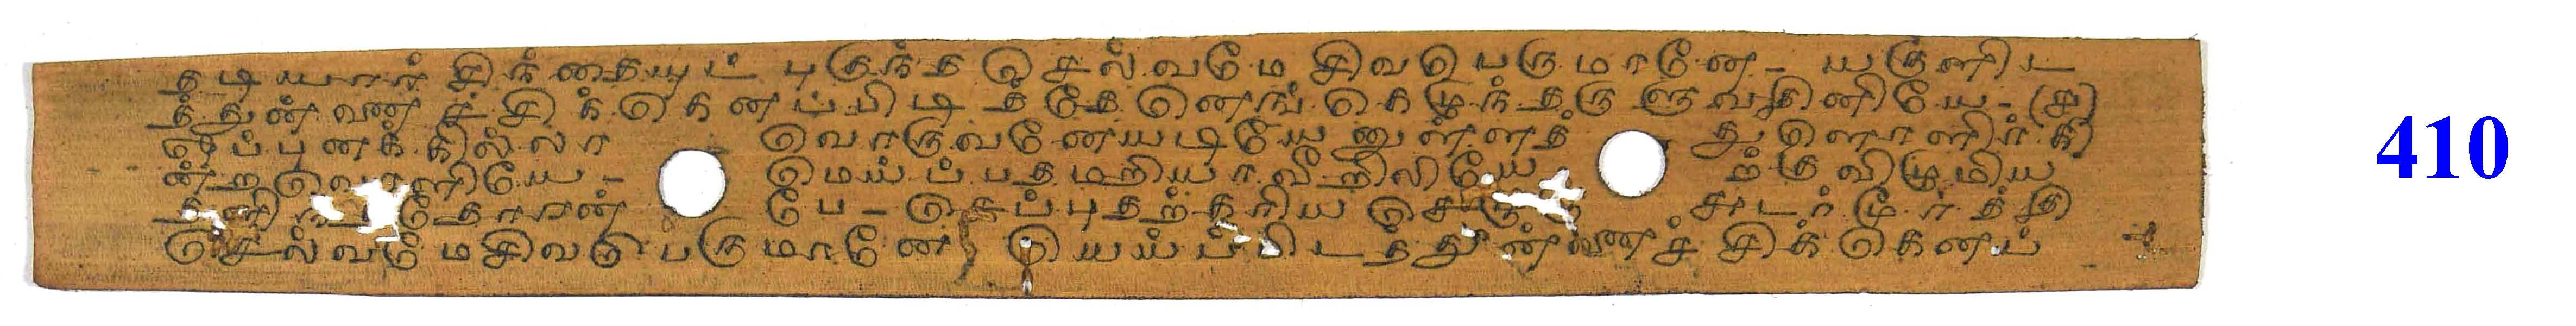 தடியார் சிந்தையுட் புகுந்த செல்வமே சிவபெருமானே - யருளிட
த்துன்னைச் சிக்கெனப்பிடித்தேனெங்கெழுந்தருளுவதினியே - (௪)
ஒப்புனக்கில்லா வொருவனேயடியேனுள்ளத் துளொளிர்கி
ன்றவொளியே - மெய்ப்பதமறியாவீறிலியே ற்குவிழுமிய
தளி தோரன் பே - செப்புதற்கரிய சுடர்மூர்த்தி
செல்வமேசிவபெருமானே யெய்ப்பிடத்துன்னைச் சிக்கெனப்
410